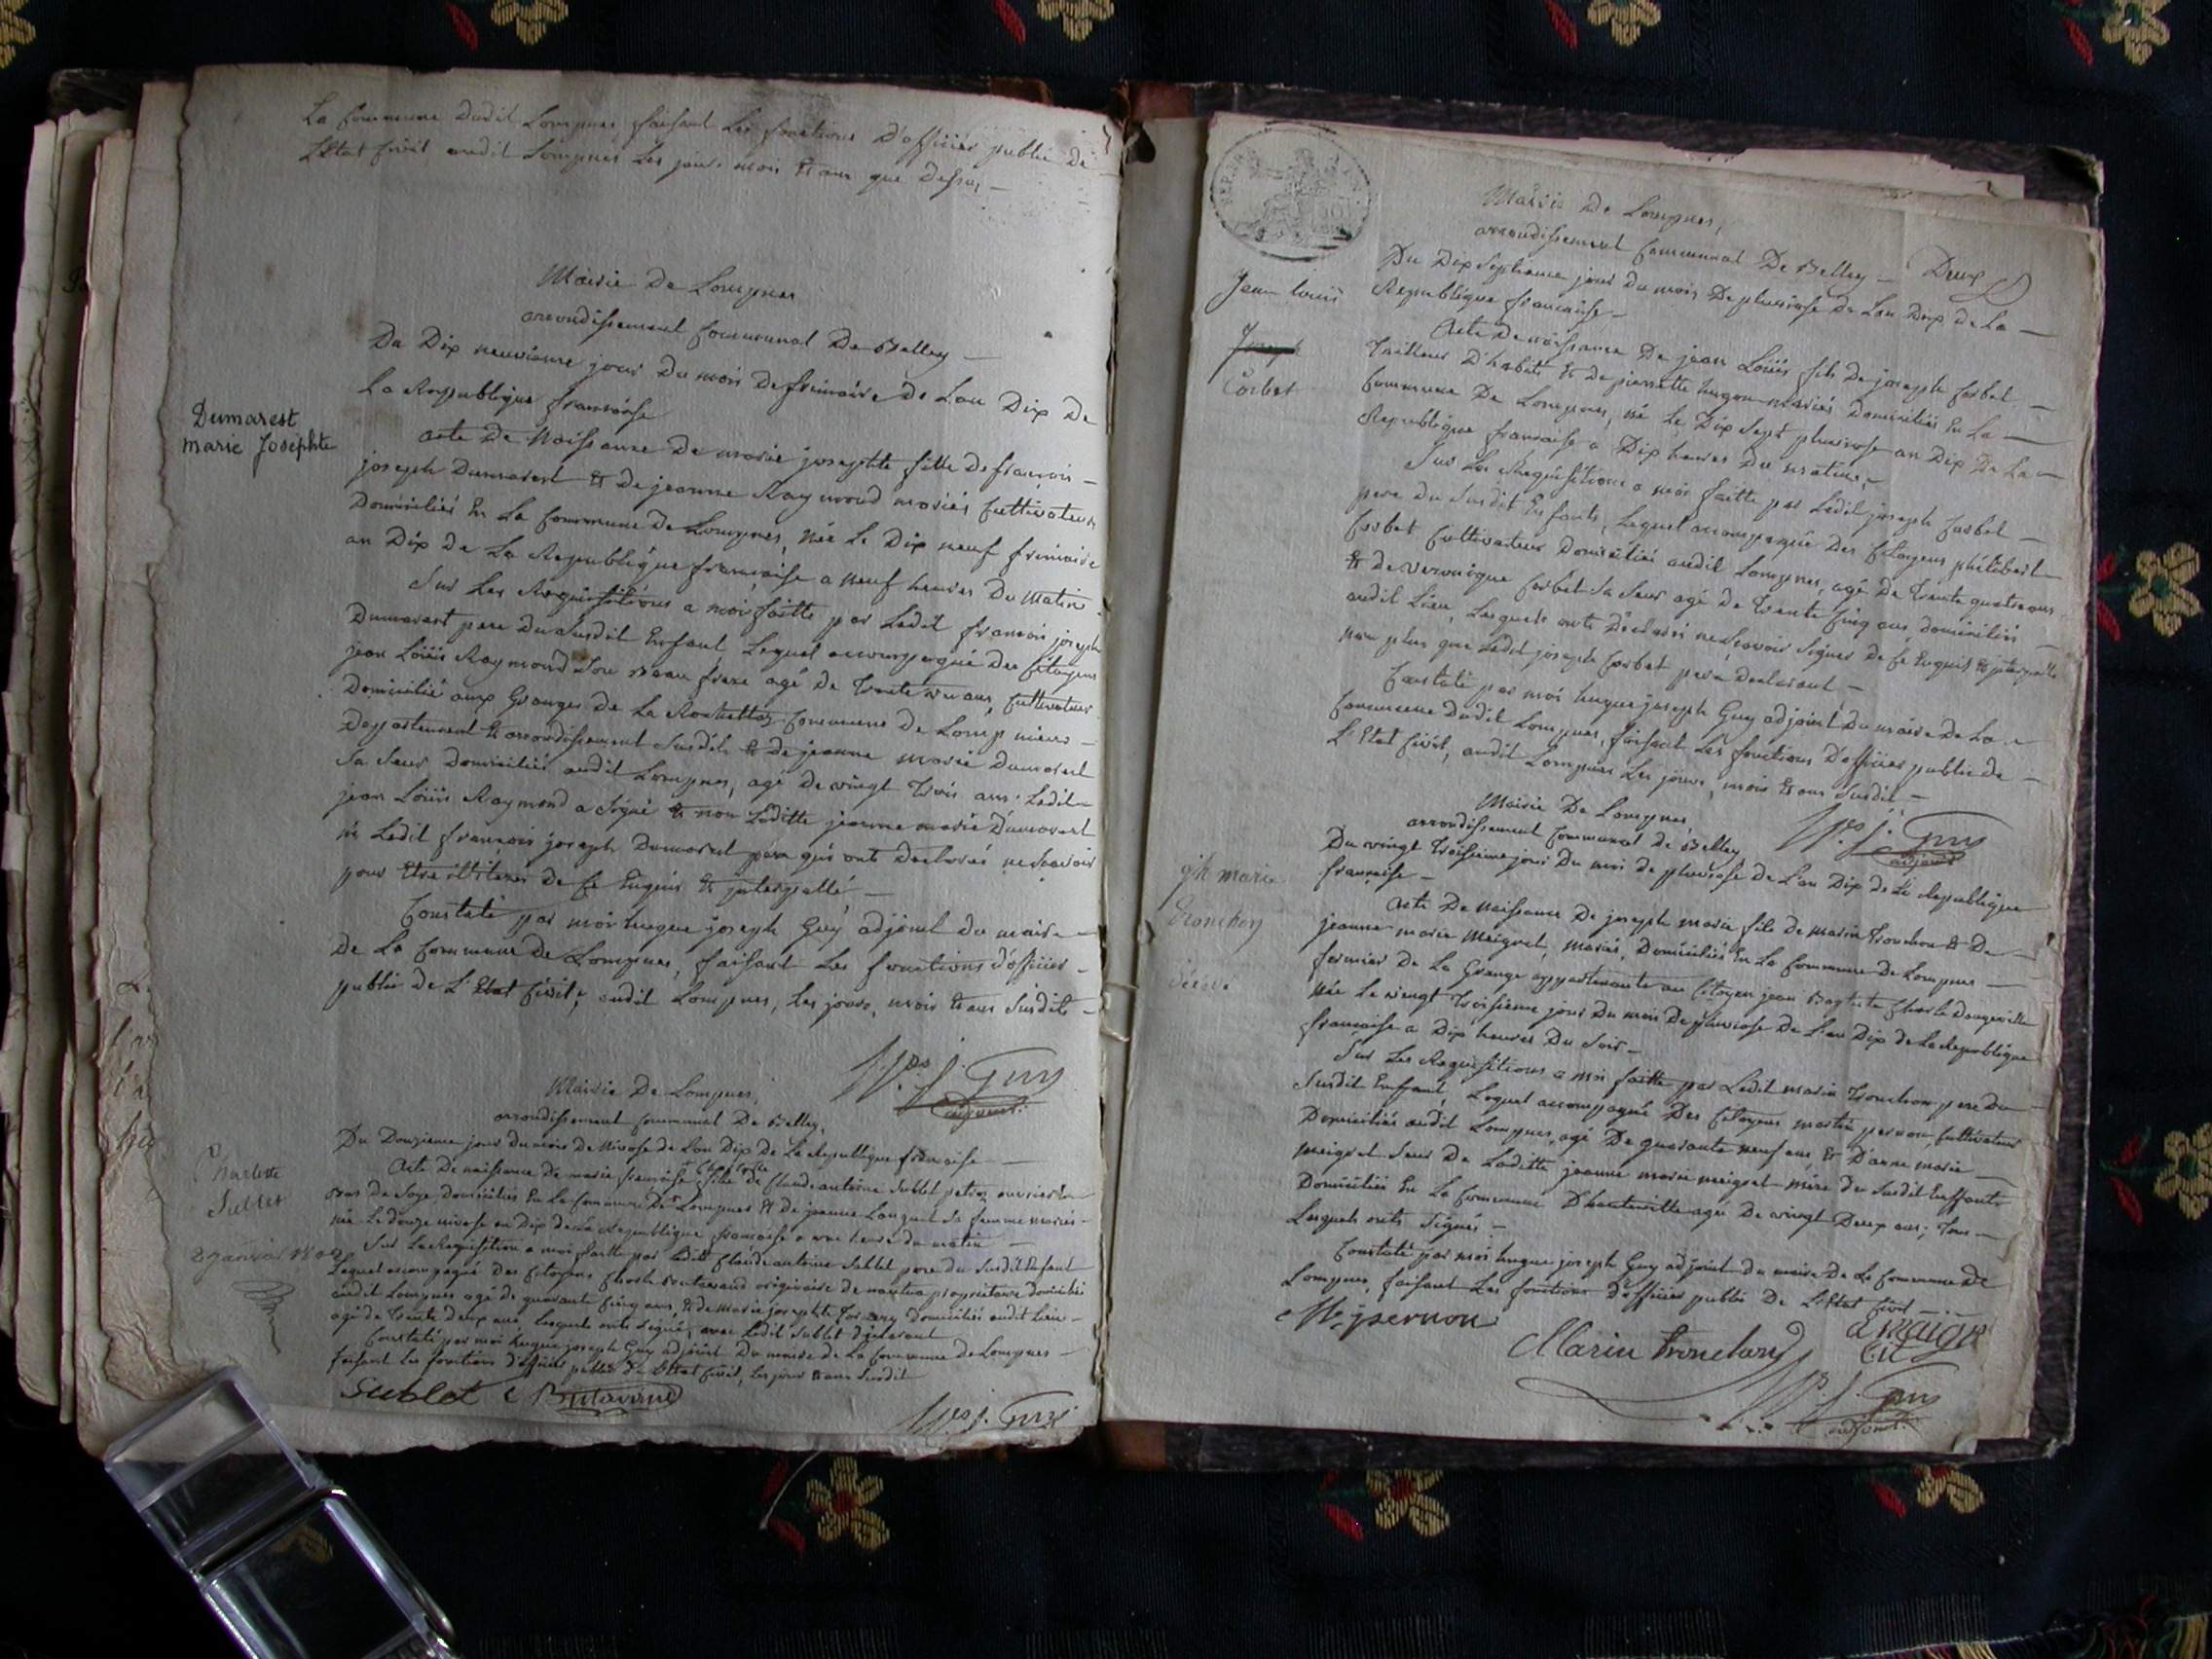 La Commune dudit Lompnes, faisant les fonctions d'officier public de
L'Etat Civil audit Lompnes les jour, mois & an que dessus —
Mairie de Lompnes
arrondissement Communal De Belley —
Du Dix neuvieme jour Du mois De frimaire de L'an Dix De
La Republique francoise
Dumarest
marie Josephte
acte De Naissance De marie josephte fille De francois —
joseph Dumarest & De jeanne Raymond mariés Cultivateurs
Domiciliés En La Commune de Lompnes, née Le Dix neuf frimaire
an Dix de La Republique francaise a neuf heures Du Matin
Sur Les Requisitions a moi faitte par Ledit francois joseph
Dumarest pere Du susdit Enfant Lequel accompagné Des Citoyens
jean Loüis Raymond Son Beau frere agé de Trente ans, Cultivateur
Domicilié aux Granges de La Commune de Lompnieux —
Deppartement & arrondissement susdits & De jeanne marie Dumarest
Sa Sœur Domiciliée audit Lompnes, agé de vingt Trois ans. Ledit
jean Loüis Raymond a Signé & non Laditte jeanne marie Dumarest
ni Ledit francois joseph Dumarest pere qui ont Declarés ne Scavoir
pour Etre illiteres de Ce Enquis & interpellé —
Constaté par moi hugue joseph Guy adjoint du maire —
De La Commune de Lompnes, faisant Les fonctions d'officier —
public de L'Etat Civil, audit Lompnes, Les jours, mois & ans Susdits —
hgs j. Guy
adjoint
Mairie De Lompnes,
arrondissement Communal De Belley,
Du Douzieme jour du mois De Nivose de L'an Dix De La Republique francaise —
Charlotte
Sublet
2 janvier 1802
charlotte
Acte De naissance De marie francoise fille De Claude antoine Sublet
De Soye Domiciliés En La Commune De Lompnes & de jeanne Longuet Sa femme mariés —
née Le douze nivose an Dix de La Republique francaise a une heure du matin —
Sur La Requisition a moi faitte par Ledit Claude antoine Sublet pere du Susdit Enfant
Lequel accompagné Des Citoyens Charle Boutavand originaire de nantua proprietaire domicilié
audit Lompnes agé de quarante Cinq ans, & de marie josephte domiciliée audit Lieu —
agée de Trente deux ans, Lesquels ont Signé, avec Ledit Sublet Declarant
Constaté par moi hugue joseph Guy adjoint Du maire de La Commune de Lompnes —
faisant Les fonctions d'officier public de L'Etat Civil, Les jour & ans Susdit
Sublet Butavand
hgs j. Guy
Mairie De Lompnes,
arrondissement Communal De Belley — Deux
Du Dix Septieme jour Du mois De pluviose De L'an Dix de La —
Republique francaise —
Jean Louis
Joseph
Corbet
Acte De naissance De jean Loüis fils De joseph Corbet —
Tailleur D'habits & de pierrette hugon mariés Domiciliés En La —
Commune De Lompnes, né Le Dix Sept pluviose an Dix De La —
Republique francaise a Dix heures Du matin —
Sur La Requisition a moi faitte par Ledit joseph Corbet —
pere Du Susdit Enfant, Lequel accompagné Des Citoyens philibert
Corbet Cultivateur Domicilié audit Lompnes, agé De Trente quatre ans
& de veronique Corbet Sa Sœur agé de Trente Cinq ans, domiciliés
audit Lieu, Lesquels onts Déclaré ne Scavoir Signer de Ce Enquis & interpellé
non plus que Ledit joseph Corbet pere declarant —
Constaté par moi hugue joseph Guy adjoint Du maire De La
Commune Dudit Lompnes, faisant Les fonctions D'officier public de —
L'Etat Civil, audit Lompnes Les jours, mois & ans Susdit —
hgs j. Guy
adjoint
Mairie De Lompnes,
arrondissement Communal de Belley
Du vingt Troisieme jour Du mois de pluviose de L'an Dix de La Republique
francaise —
jh marie
Tronchon
Acte De Naissance De joseph marie fils de Marin Tronchon & De —
jeanne marie Meignet, mariés, Domiciliés En La Commune De Lompnes —
fermier De La Grange appartenante au Citoyen jean Baptiste Charle Dangeville
née Le vingt Troisieme jour Du mois De pluviose De L'an Dix de La Republique
francaise a Dix heures Du Soir —
Sur Les Requisitions a moi faitte par Ledit marin Tronchon pere Du
Susdit Enffant, Lequel accompagné Des Citoyens martin pernon, Cultivateur
Domiciliés audit Lompnes, agé De quarante neuf ans, & D'anne marie —
meignet Sœur De Laditte jeanne marie meignet mère du Susdit Enffant
Domiciliée En La Commune D'hauteville agée De vingt Deux ans; Tous —
Lesquels onts Signés —
Constaté par moi hugue joseph Guy adjoint du maire De La Commune De
Lompnes, faisant Les fonctions D'officier public De L'Etat Civil —
M pernon
Marin Tronchon
hgs j. Guy
adjoint